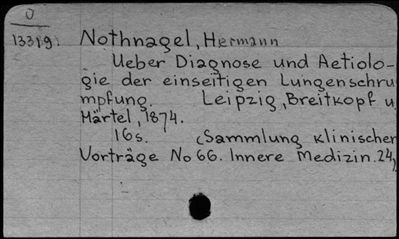 O
13319. Nothnagel, Hermann
Ueber Diagnose und Aetiolo-
gie der einseitigen Lungenschru
mpfung. Leipzig, Breitkopf u
Härtel, 1874.
16s. (Sammlung klinischer
Vorträge No 66. Innere Medizin. 24)